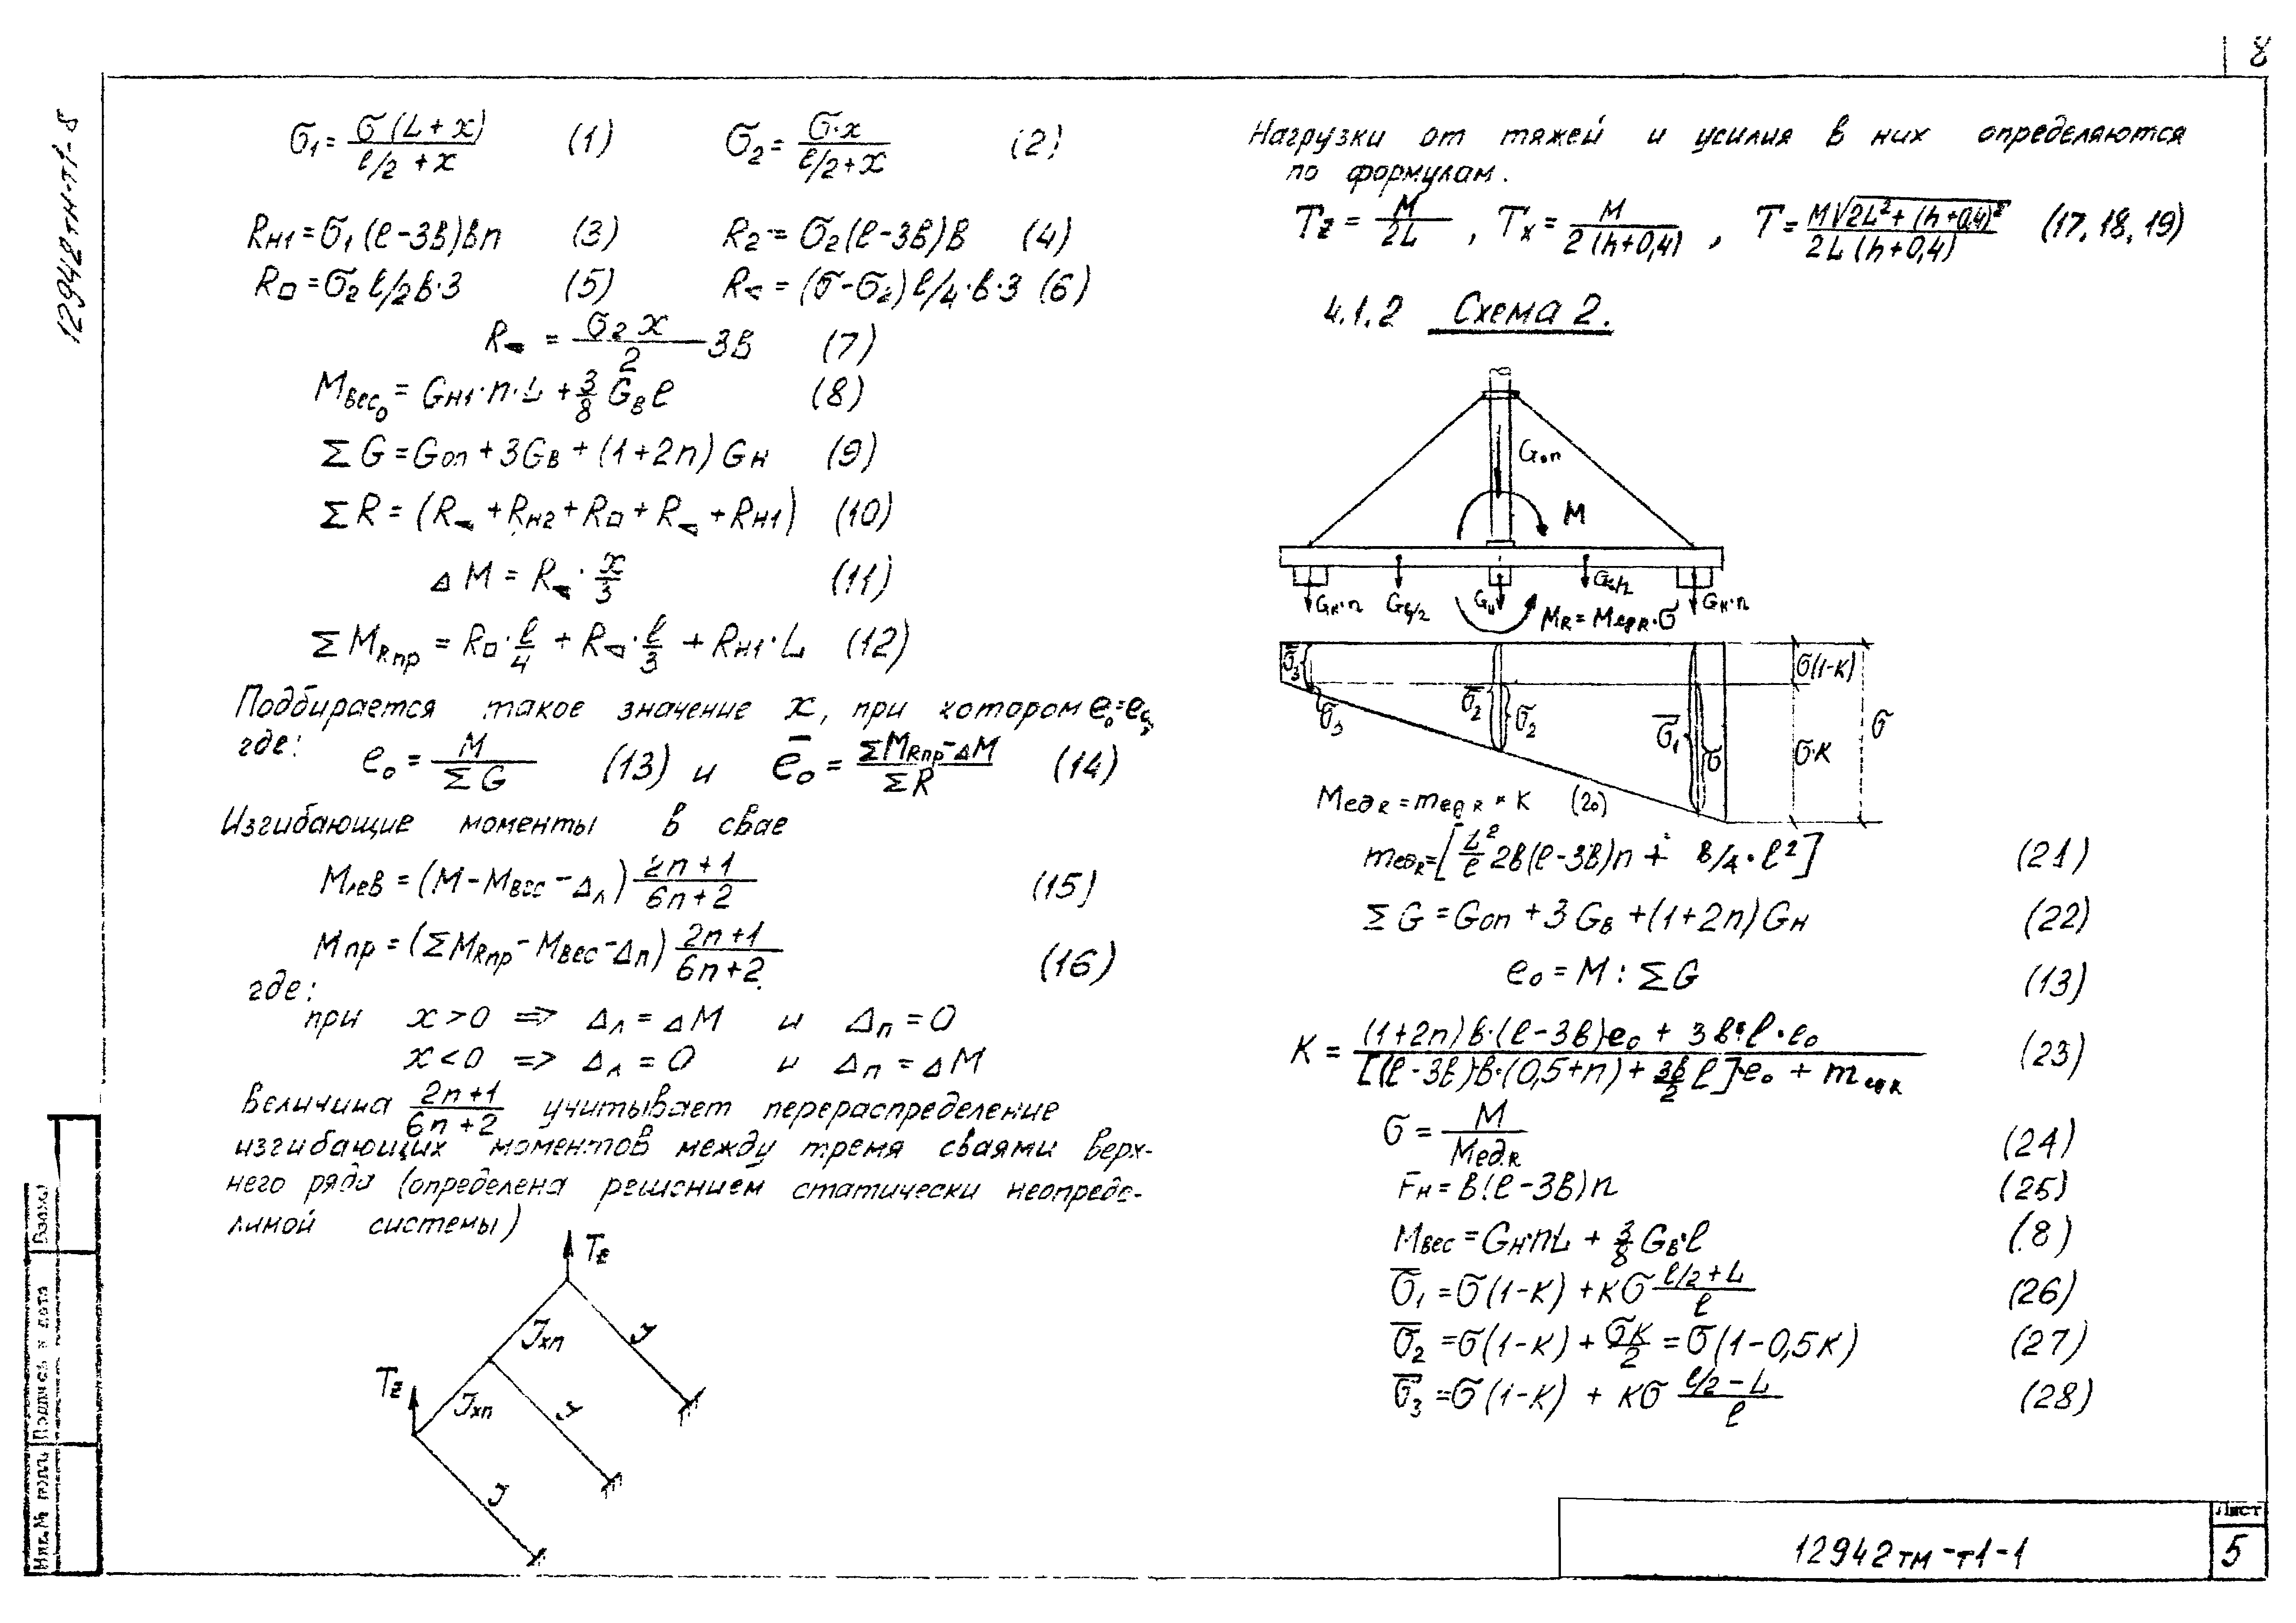 8
12942тм-т1-8
σ₁ = σ(L+x) / (l/2+x) (1) σ₂ = σ·x / (l/2+x) (2)
Rн1 = σ₁(l-3в)вn (3) R₂ = σ₂(l-3в)в (4)
R□ = σ₂ l/2 в·3 (5) R◁ = (σ-σ₂) l/4·в·3 (6)
R◀ = σ₂x / 2 3в (7)
Mвес₀ = Gн1·n·L + 3/8 Gв l (8)
ΣG = Gоп + 3Gв + (1+2n)Gн (9)
ΣR = (R◀ + Rн2 + R□ + R◁ + Rн1) (10)
ΔM = R◀ · x/3 (11)
ΣMRпр = R□·l/4 + R◁·l/3 + Rн1·L (12)
Подбирается такое значение x, при котором e₀=e̅₀,
где: e₀ = M / ΣG (13) и e̅₀ = (ΣMRпр - ΔM) / ΣR (14)
Изгибающие моменты в свае
Mлев = (M - Mвес - Δл) (2n+1)/(6n+2) (15)
Mпр = (ΣMRпр - Mвес - Δп) (2n+1)/(6n+2) (16)
где:
при x>0 => Δл = ΔM и Δп = 0
x<0 => Δл = 0 и Δп = ΔM
Величина (2n+1)/(6n+2) учитывает перераспределение
изгибающих моментов между тремя сваями верх-
него ряда (определена решением статически неопреде-
лимой системы)
Tz
Jхп
J
Tz
Jхп
J
J
Нагрузки от тяжей и усилия в них определяются
по формулам.
Tz = M / 2L , Tx = M / 2(h+0,4) , T = M√(2L²+(h+0,4)²) / 2L(h+0,4) (17, 18, 19)
4.1.2 Схема 2.
Gоп
M
Gн·n Gв/2 Gн Gн·n
MR = MедR·σ
σ̅₃ σ₃ σ̅₂ σ₂ σ̅₁ σ σ(1-K) σ·K σ
MедR = mедR * K (20)
mедR = [L²/l 2в(l-3в)n + в/4·l²] (21)
ΣG = Gоп + 3Gв + (1+2n)Gн (22)
e₀ = M : ΣG (13)
K = ((1+2n)в·(l-3в)e₀ + 3в·l·e₀) / ([(l-3в)·в·(0,5+n) + 3в/2 l]·e₀ + mедR) (23)
σ = M / Mед.R (24)
Fн = в(l-3в)n (25)
Mвес = Gн·nL + 3/8 Gв·l (8)
σ̅₁ = σ(1-K) + Kσ (l/2+L)/l (26)
σ̅₂ = σ(1-K) + σK/2 = σ(1-0,5K) (27)
σ̅₃ = σ(1-K) + Kσ (l/2-L)/l (28)
Инв.№ подл. Подпись и дата
12942тм-т1-1
Лист
5